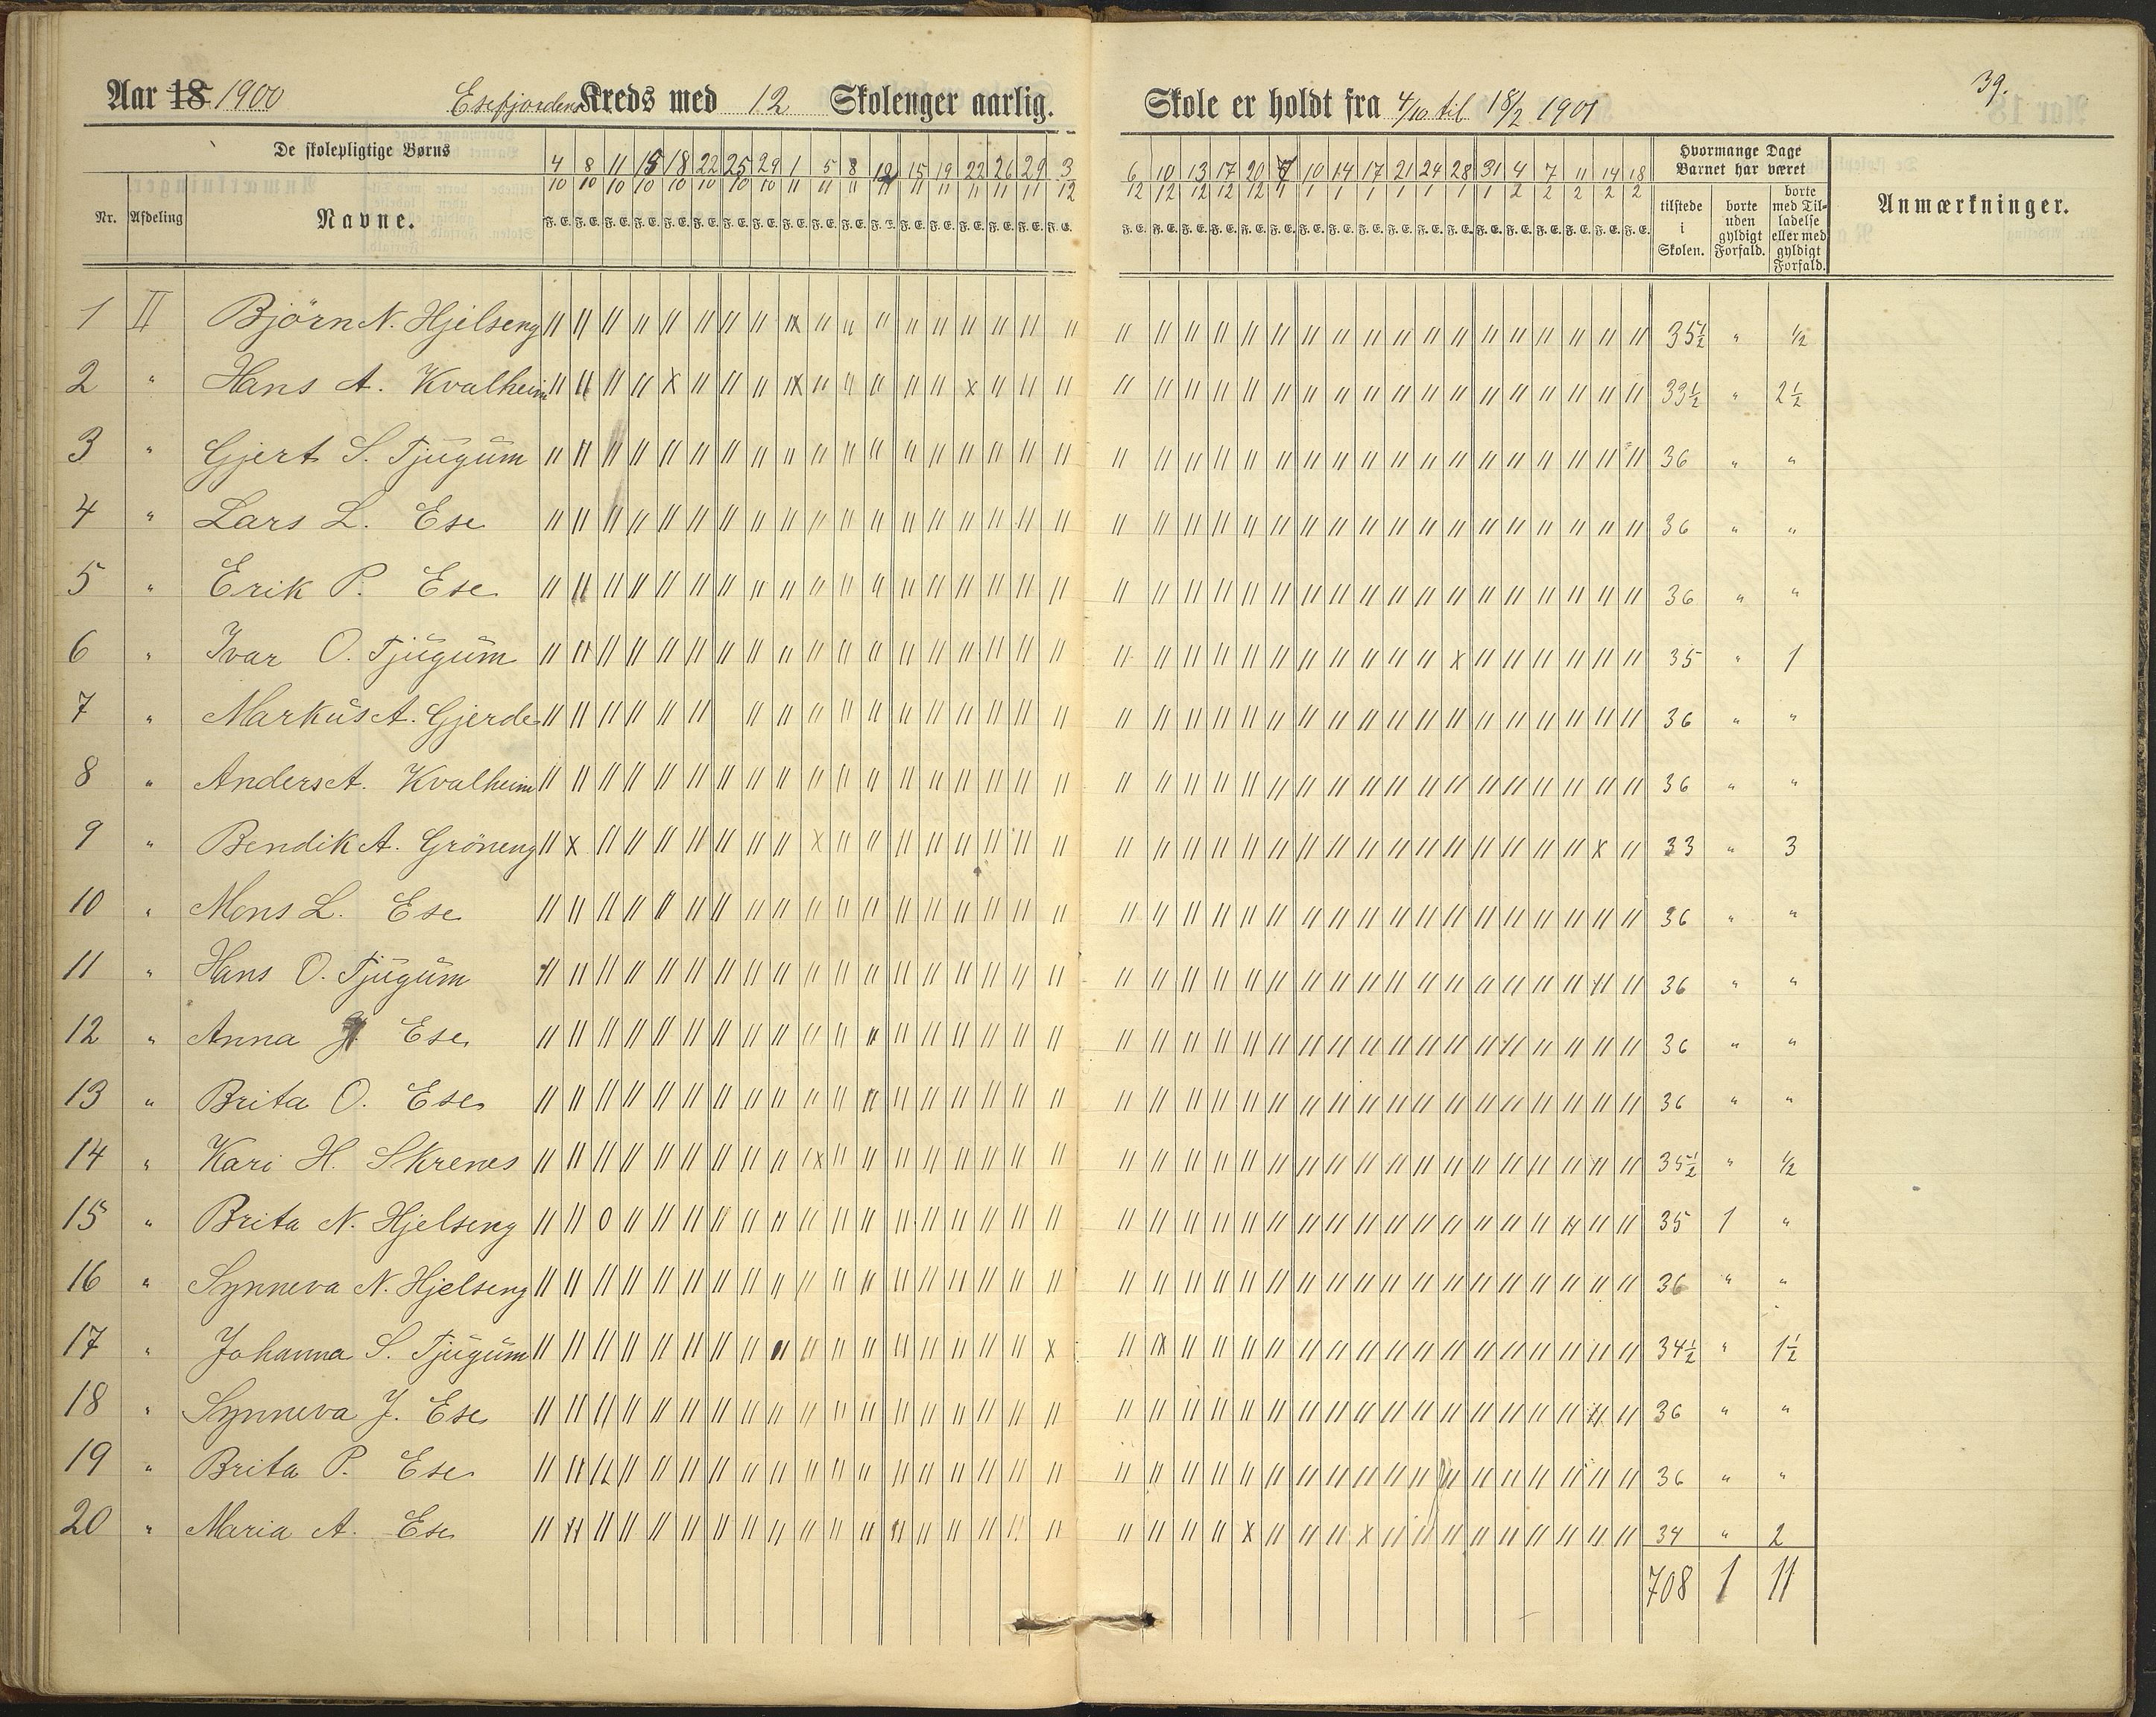 Aar 18 1900 Esefjordens Kreds med 12 Skolenger aarlig. Skole er holdt fra 4/10 til 18/2 1901
39.
De skolepligtige Børns
Nr. Afdeling Navne.
4/10 8/10 11/10 15/10 18/10 22/10 25/10 29/10 1/11 5/11 8/11 12/11 15/11 19/11 22/11 26/11 29/11 3/12 6/12 10/12 13/12 17/12 20/12 7/1 10/1 14/1 17/1 21/1 24/1 28/1 31/1 4/2 7/2 11/2 14/2 18/2
F. E. F. E. F. E. F. E. F. E. F. E. F. E. F. E. F. E. F. E. F. E. F. E. F. E. F. E. F. E. F. E. F. E. F. E. F. E. F. E. F. E. F. E. F. E. F. E. F. E. F. E. F. E. F. E. F. E. F. E. F. E. F. E. F. E. F. E. F. E. F. E.
Hvormange Dage
Barnet har været
tilstede i Skolen.
borte uden gyldigt Forfald.
borte med Til-
ladelse
eller med
gyldigt
Forfald.
Anmærkninger.
1 II Björn N. Hjelseng 35½ " ½
2 " Hans A. Kvalheim 33½ " 2½
3 " Gjert S. Tjugum 36 " "
4 " Lars L. Ese 36 " "
5 " Erik P. Ese 36 " "
6 " Ivar O. Tjugum 35 " 1
7 " Markus A. Gjerde 36 " "
8 " Anders A. Kvalheim 36 " "
9 " Bendik A. Gröneng 33 " 3
10 " Mons L. Ese 36 " "
11 " Hans O. Tjugum 36 " "
12 " Anna J. Ese 36 " "
13 " Brita O. Ese 36 " "
14 " Kari H. Skrenes 35½ " ½
15 " Brita N. Hjelseng 35 1 "
16 " Synneva N. Hjelseng 36 " "
17 " Johanna S. Tjugum 34½ " 1½
18 " Synneva J. Ese 36 " "
19 " Brita P. Ese 36 " "
20 " Maria A. Ese 34 " 2
708 1 11